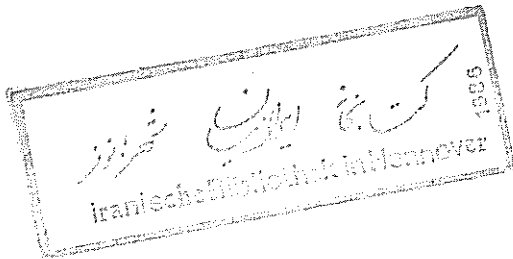 کتابخانه ایرانیان هانوفر
1986
Iranische Bibliothek in Hannover